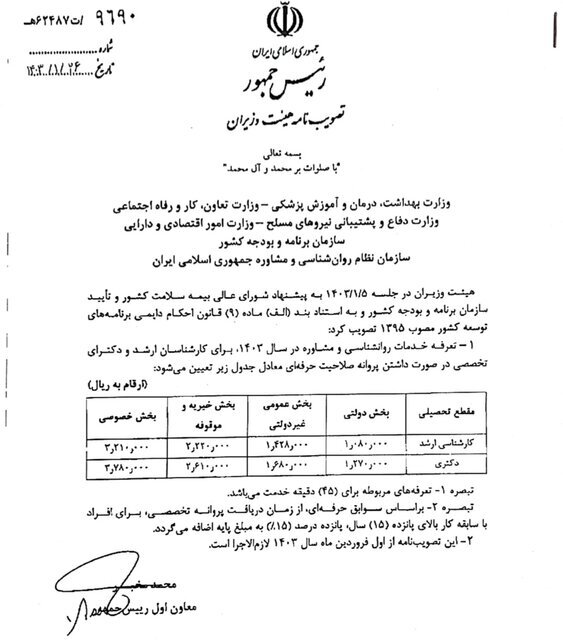 ۹۶۹۰ /ت۶۲۴۸۷هـ
شماره
تاریخ ۱۴۰۳/۱/۲۶
جمهوری اسلامی ایران
رئیس جمهور
تصویب نامه هیئت وزیران
بسمه تعالی
"با صلوات بر محمد و آل محمد"
وزارت بهداشت، درمان و آموزش پزشکی – وزارت تعاون، کار و رفاه اجتماعی
وزارت دفاع و پشتیبانی نیروهای مسلح – وزارت امور اقتصادی و دارایی
سازمان برنامه و بودجه کشور
سازمان نظام روان‌شناسی و مشاوره جمهوری اسلامی ایران
هیئت وزیران در جلسه ۱۴۰۳/۱/۵ به پیشنهاد شورای عالی بیمه سلامت کشور و تأیید
سازمان برنامه و بودجه کشور و به استناد بند (الف) ماده (۹) قانون احکام دایمی برنامه‌های
توسعه کشور مصوب ۱۳۹۵ تصویب کرد:
۱– تعرفه خدمات روانشناسی و مشاوره در سال ۱۴۰۳، برای کارشناسان ارشد و دکترای
تخصصی در صورت داشتن پروانه صلاحیت حرفه‌ای معادل جدول زیر تعیین می‌شود:
(ارقام به ریال)
مقطع تحصیلی بخش دولتی بخش عمومی غیردولتی بخش خیریه و موقوفه بخش خصوصی
کارشناسی ارشد ۱٫۰۸۰٫۰۰۰ ۱٫۴۲۸٫۰۰۰ ۲٫۲۲۰٫۰۰۰ ۳٫۲۱۰٫۰۰۰
دکتری ۱٫۲۷۰٫۰۰۰ ۱٫۶۸۰٫۰۰۰ ۲٫۶۱۰٫۰۰۰ ۳٫۷۸۰٫۰۰۰
تبصره ۱– تعرفه‌های مربوطه برای (۴۵) دقیقه خدمت می‌باشد.
تبصره ۲– براساس سوابق حرفه‌ای، از زمان دریافت پروانه تخصصی، برای افراد
با سابقه کار بالای پانزده (۱۵) سال، پانزده درصد (۱۵٪) به مبلغ پایه اضافه می‌گردد.
۲– این تصویب‌نامه از اول فروردین ماه سال ۱۴۰۳ لازم‌الاجرا است.
محمد مخبر
معاون اول رییس جمهور